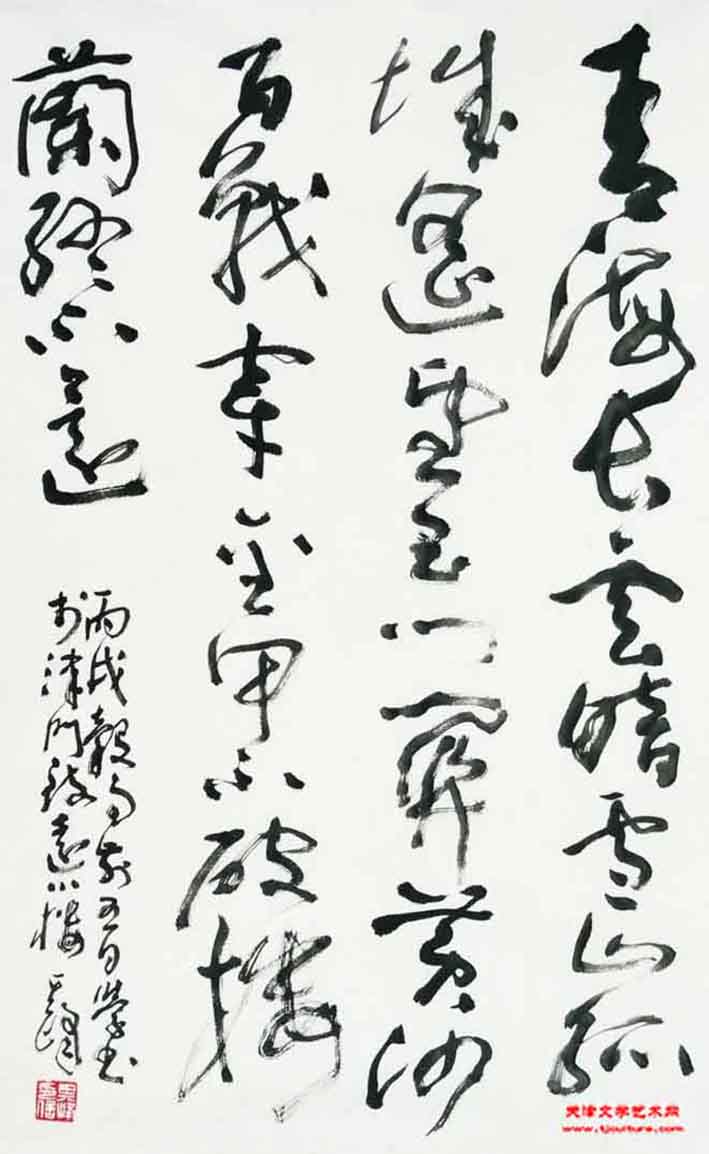 青海長云暗雪山孤
城遙望玉門關黃沙
百戰穿金甲不破樓
蘭終不還
丙戌穀雨前五日書
於津門致遠小樓
天津文学艺术网
www.tjculture.com